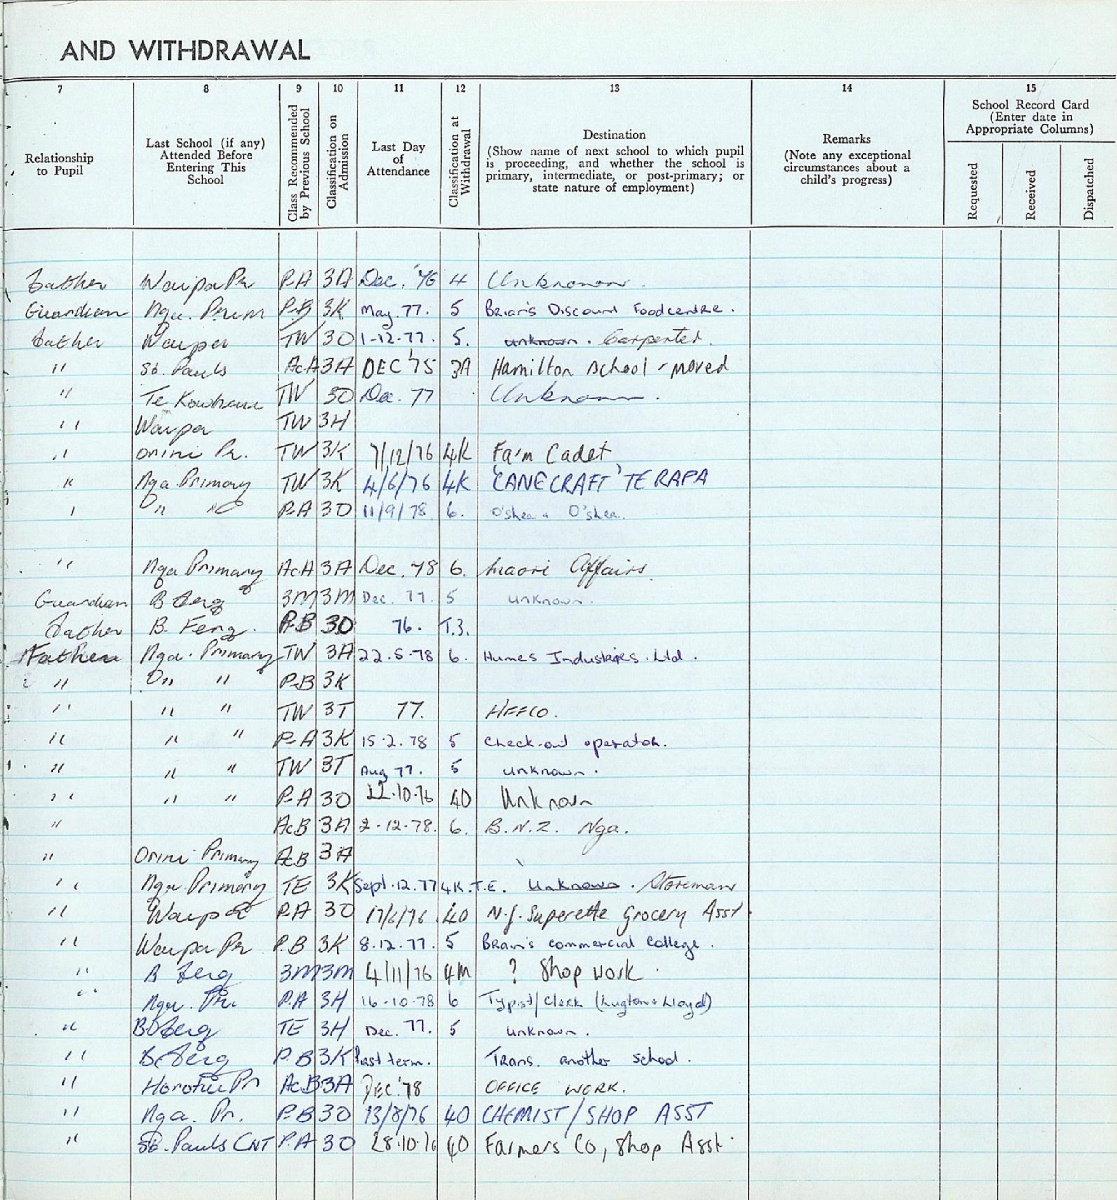 AND WITHDRAWAL
7 8 9 10 11 12 13 14 15
Relationship to Pupil
Last School (if any) Attended Before Entering This School
Class Recommended by Previous School
Classification on Admission
Last Day of Attendance
Classification at Withdrawal
Destination
(Show name of next school to which pupil is proceeding, and whether the school is primary, intermediate, or post-primary; or state nature of employment)
Remarks
(Note any exceptional circumstances about a child's progress)
School Record Card
(Enter date in Appropriate Columns)
Requested Received Dispatched
Father Waipa Pr P.A 3A Dec. '76 4 Unknown.
Guardian Nga. Prim P.B 3K May. 77. 5 Brian's Discount Foodcentre.
Father Waipa TW 3O 1-12-77. 5. unknown. Carpenter.
" St. Pauls AcA 3A DEC '75 3A Hamilton school - moved
" Te Kowhai TW 3O Dec. 77 Unknown.
" Waipa TW 3H
" Orini Pr. TW 3K 7/12/76 4K Fa'm Cadet
" Nga Primary TW 3K 4/6/76 4K 'CANECRAFT' TE RAPA
" On " P.A 3O 11/9/78 6. O'shea & O'shea.
" Nga Primary AcA 3A Dec. '78 6. Maori Affairs.
Guardian B Ferg 3M 3M Dec. 77. 5 unknown.
Father B. Ferg. P.B 3O 76. T.3.
Father Nga. Primary TW 3A 22.5.78 6. Humes Industries. Ltd.
" On " P.B 3K
" " " TW 3T 77. HEFCO.
" " " P.A 3K 15.2.78 5 Check-out operator.
" " " TW 3T Aug 77. 5 unknown.
" " " P.A 3O 22.10.76 4O Unknown
" AcB 3A 2-12-78. 6. B.N.Z. Nga.
" Orini Primary AcB 3A
" Nga Primary TE 3K Sept. 12.77 4K.T.E. Unknown. Storeman
" Waipa P.A 3O 17/6/76 4O N.J. Superette Grocery Asst
" Waipa Pr P.B 3K 8.12.77. 5 Brain's commercial College.
" B Ferg 3M 3M 4/11/76 4M ? Shop work.
" Nga. Pr. P.A 3H 16-10-78 6 Typist/Clerk (Lugton & Lloyd)
" B Ferg TE 3H Dec. 77. 5 unknown.
" B Ferg P.B 3K Past term. Trans. another school.
" Horotiu Pr AcB 3A DEC '78 OFFICE WORK.
" Nga. Pr. P.B 3O 13/8/76 4O CHEMIST/SHOP ASST
" St. Pauls CNT P.A 3O 28.10.76 4O Farmers Co, Shop Asst.